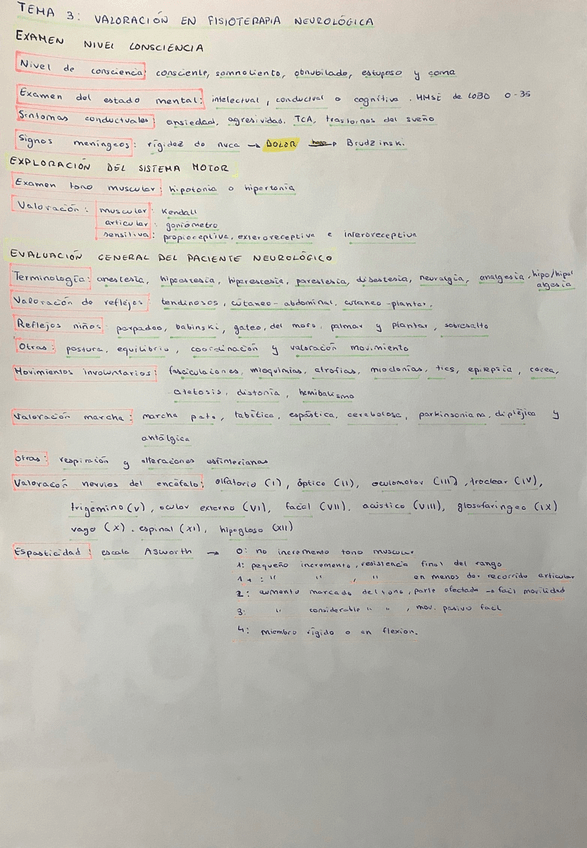 TEMA 3: VALORACIÓN EN FISIOTERAPIA NEUROLÓGICA
EXAMEN NIVEL CONSCIENCIA
Nivel de consciencia: consciente, somnoliento, obnubilado, estuposo y coma
Examen del estado mental: intelectual, conductual o cognitiva. MMSE de LOBO 0-35
Síntomas conductuales: ansiedad, agresividad, TCA, trastornos del sueño
Signos meníngeos: rigidez de nuca → DOLOR → Brudzinsk.
EXPLORACIÓN DEL SISTEMA MOTOR
Examen tono muscular: hipotonía o hipertonía
Valoración: muscular: Kendall
articular: goniómetro
sensitiva: propioceptiva, exteroceptiva e interoceptiva
EVALUACIÓN GENERAL DEL PACIENTE NEUROLÓGICO
Terminología: anestesia, hipoestesia, hiperestesia, parestesia, disestesia, neuralgia, analgesia, hipo/hiper
algesia
Valoración de reflejos: tendinosos, cutáneo-abdominal, cutáneo-plantar.
Reflejos niños: parpadeo, babinski, gateo, del moro, palmar y plantar, sobresalto
Otras: postura, equilibrio, coordinación y valoración movimiento
Movimientos involuntarios: fasciculaciones, mioquinias, atrofias, mioclonías, tics, epilepsia, corea,
atetosis, distonía, hemibalismo
Valoración marcha: marcha pato, tabética, espástica, cerebelosa, parkinsoniana, dipléjica y
antálgica
otras: respiración y alteraciones esfinterianas
Valoración nervios del encéfalo: olfatorio (I), óptico (II), oculomotor (III), troclear (IV),
trigémino (V), ocular externo (VI), facial (VII), acústico (VIII), glosofaríngeo (IX)
vago (X), espinal (XI), hipogloso (XII)
Espasticidad: escala Asworth → 0: no incremento tono muscular
1: pequeño incremento, resistencia final del rango
1+: " " , " en menos del recorrido articular
2: aumento marcado del tono, parte afectada → fácil movilidad
3: " considerable " " , mov. pasivo fácil
4: miembro rígido o en flexion.